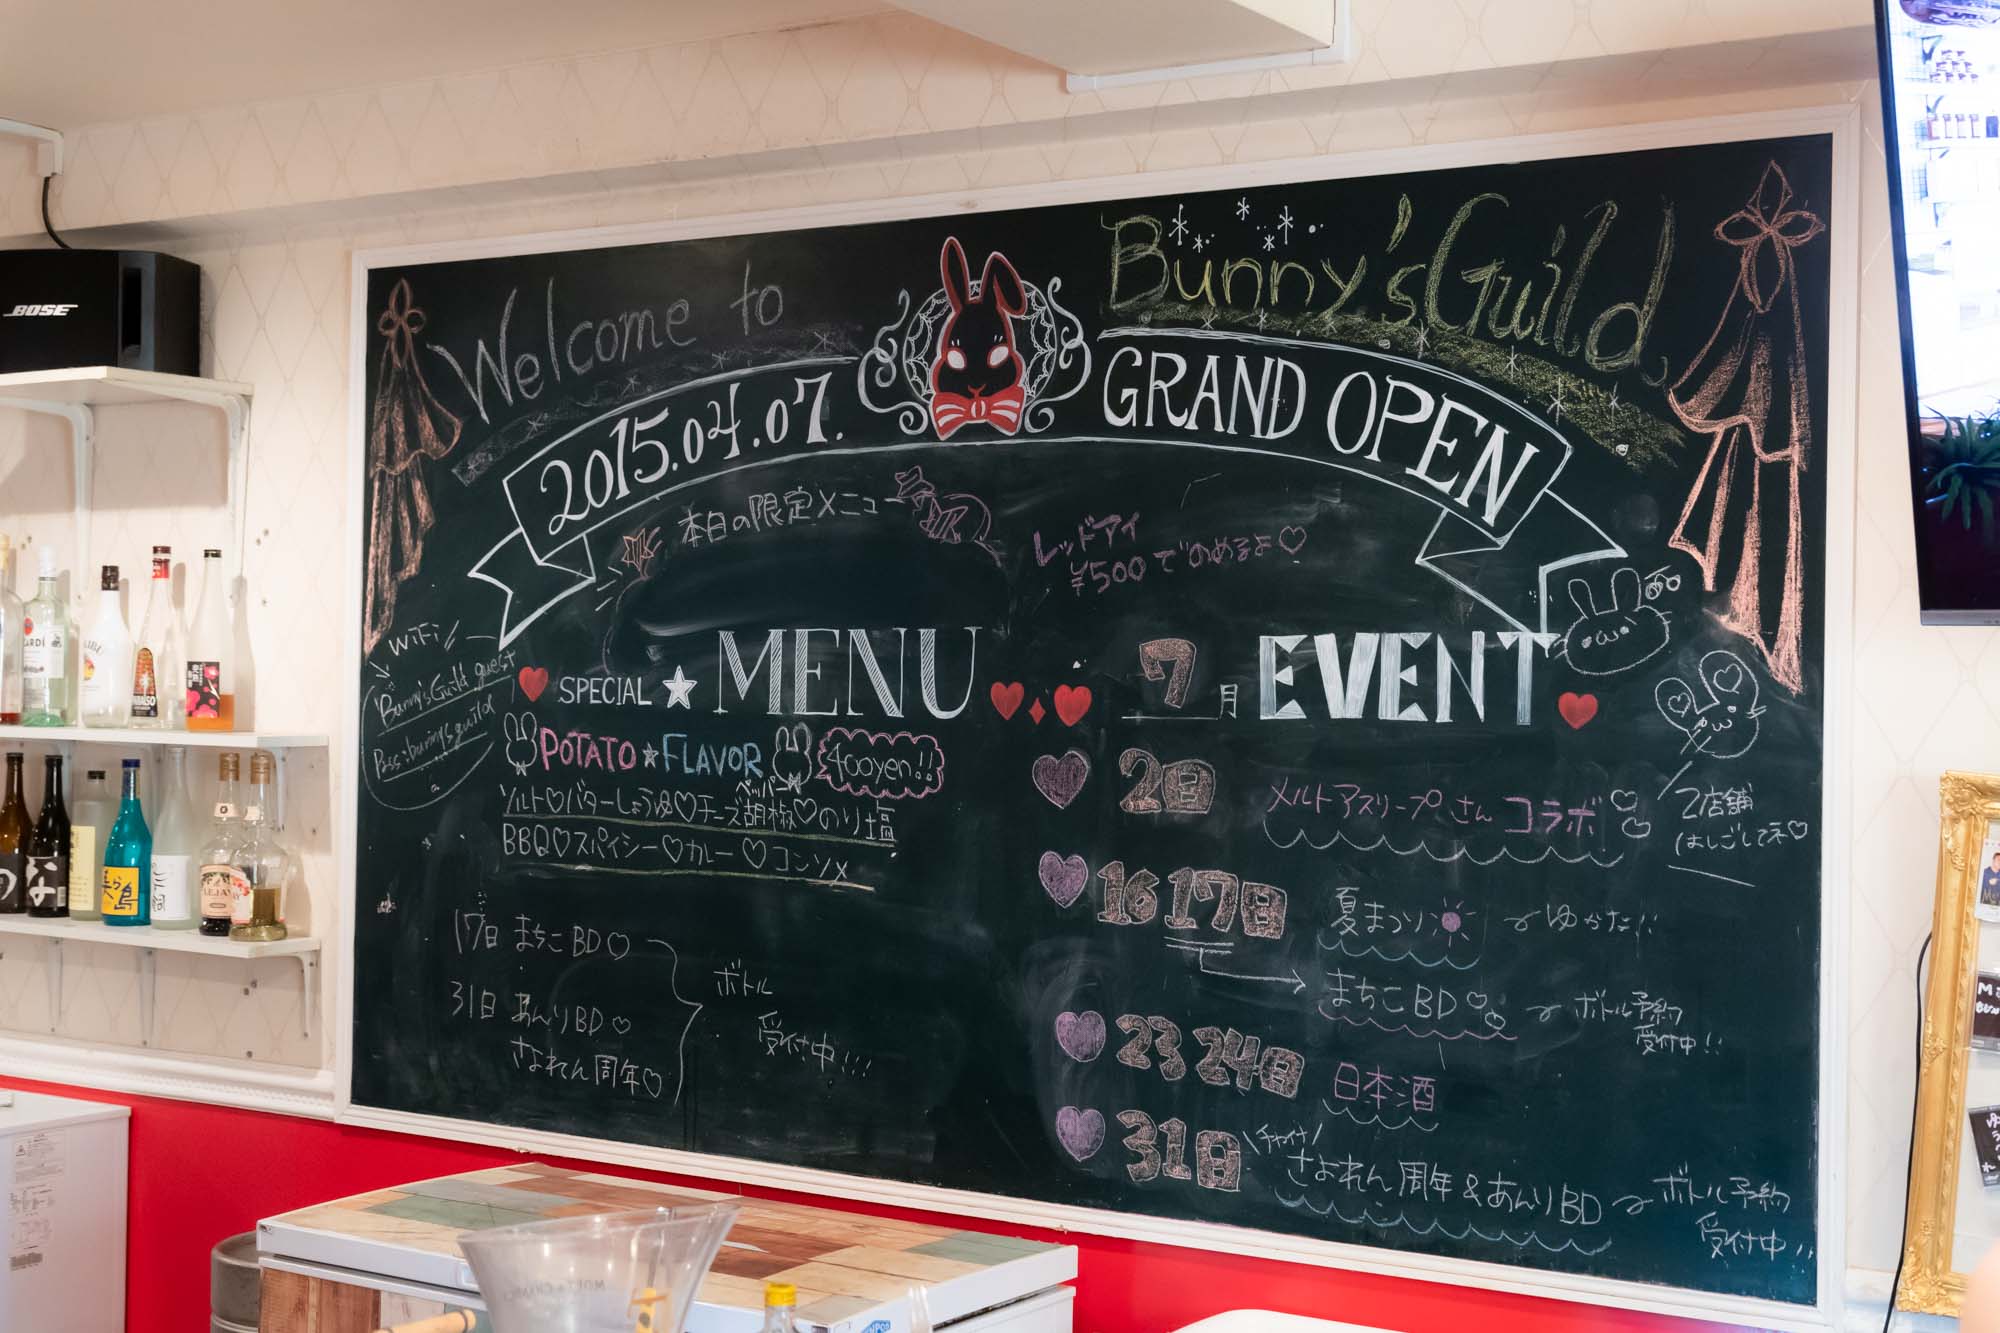 Welcome to
Bunny's Guild
2015.04.07.
GRAND OPEN
本日の限定メニュー
レッドアイ
¥500でのめるよ♡
WiFi
Bunny'sGuild guest
Pass:
SPECIAL ★ MENU
POTATO ☆ FLAVOR
400yen!!
ペッパー
ソルト♡バターしょうゆ♡チーズ胡椒♡のり塩
BBQ♡スパイシー♡カレー♡コンソメ
17日 まちこBD♡
31日 あんりBD♡
さよれん周年♡
ボトル
受付中!!!
7月 EVENT
2日 メルトアスリープさん コラボ
2店舗
はしごしてネ♡
16 17日 夏まつり 〜ゆかた!!
まちこBD♡ 〜ボトル予約
受付中!!
23 24日 日本酒
31日 \チャイナ/
さよれん周年&あんりBD 〜ボトル予約
受付中!!
BOSE